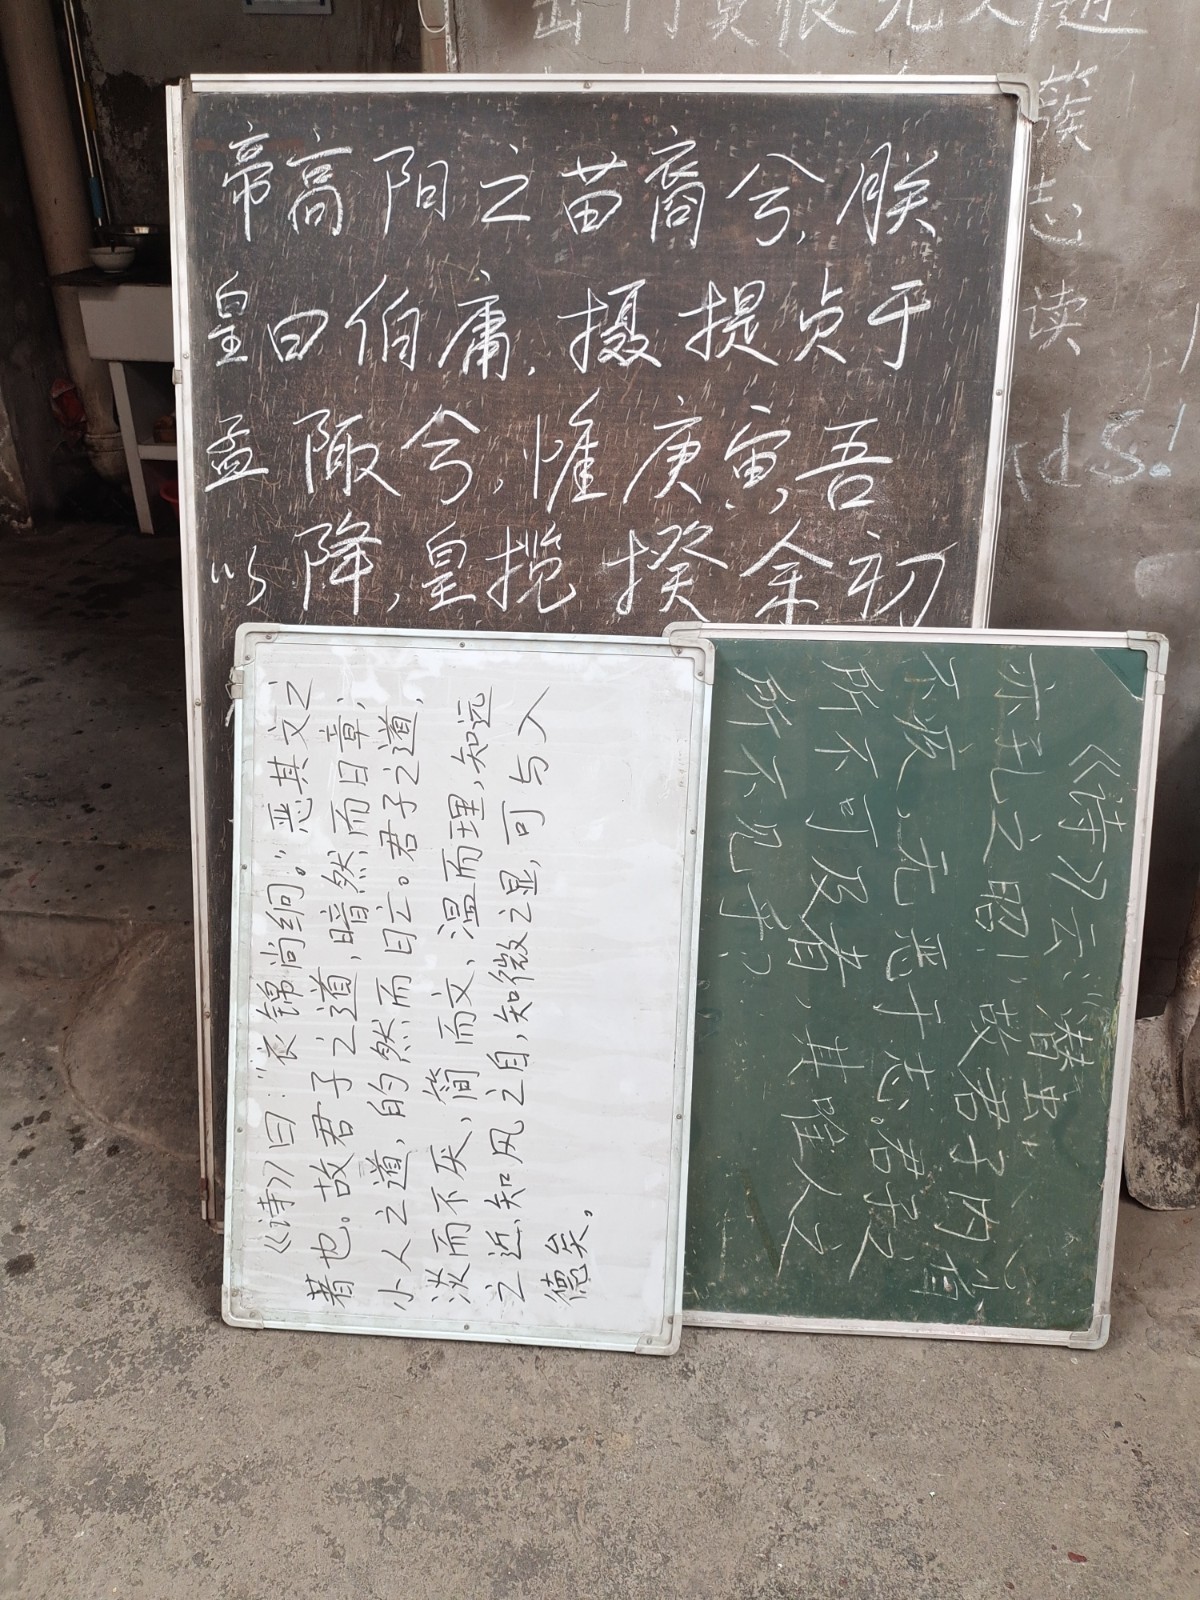 出门莫恨无人随
簇
志
读
帝高阳之苗裔兮,朕
皇曰伯庸.摄提贞于
孟陬兮,惟庚寅吾
以降,皇揽揆余初
《诗》曰:“衣锦尚絅。”恶其文之
著也。故君子之道,暗然而日章;
小人之道,的然而日亡。君子之道,
淡而不厌,简而文,温而理,知远
之近,知风之自,知微之显,可与入
德矣。
《诗》云:“潜虫
亦孔之昭!”故君子内省
不疚,无恶于志。君子之
所不可及者,其唯人之
所不见乎?